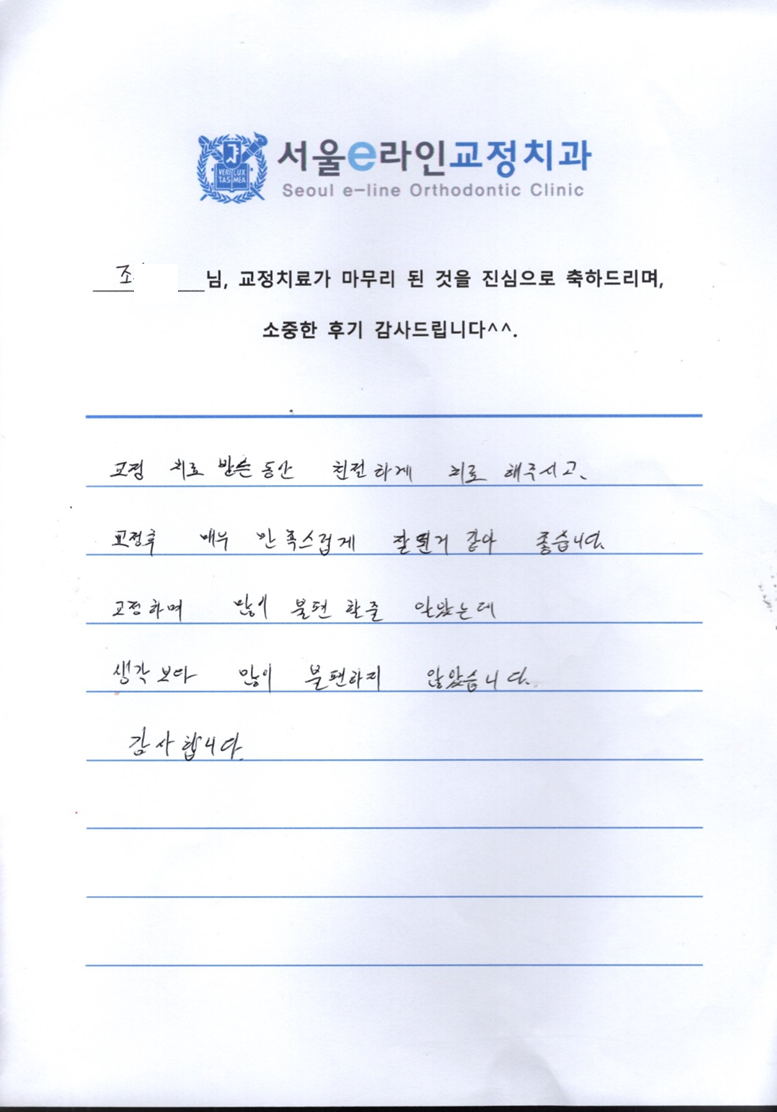 서울e라인교정치과
Seoul e-line Orthodontic Clinic
VERI LUX
TAS MEA
조 님, 교정치료가 마무리 된 것을 진심으로 축하드리며,
소중한 후기 감사드립니다^^.
교정 치료 받는동안 친절하게 치료 해주시고,
교정후 매우 만족스럽게 잘된거 같아 좋습니다.
교정하며 많이 불편할줄 알았는데
생각보다 많이 불편하지 않았습니다.
감사합니다.